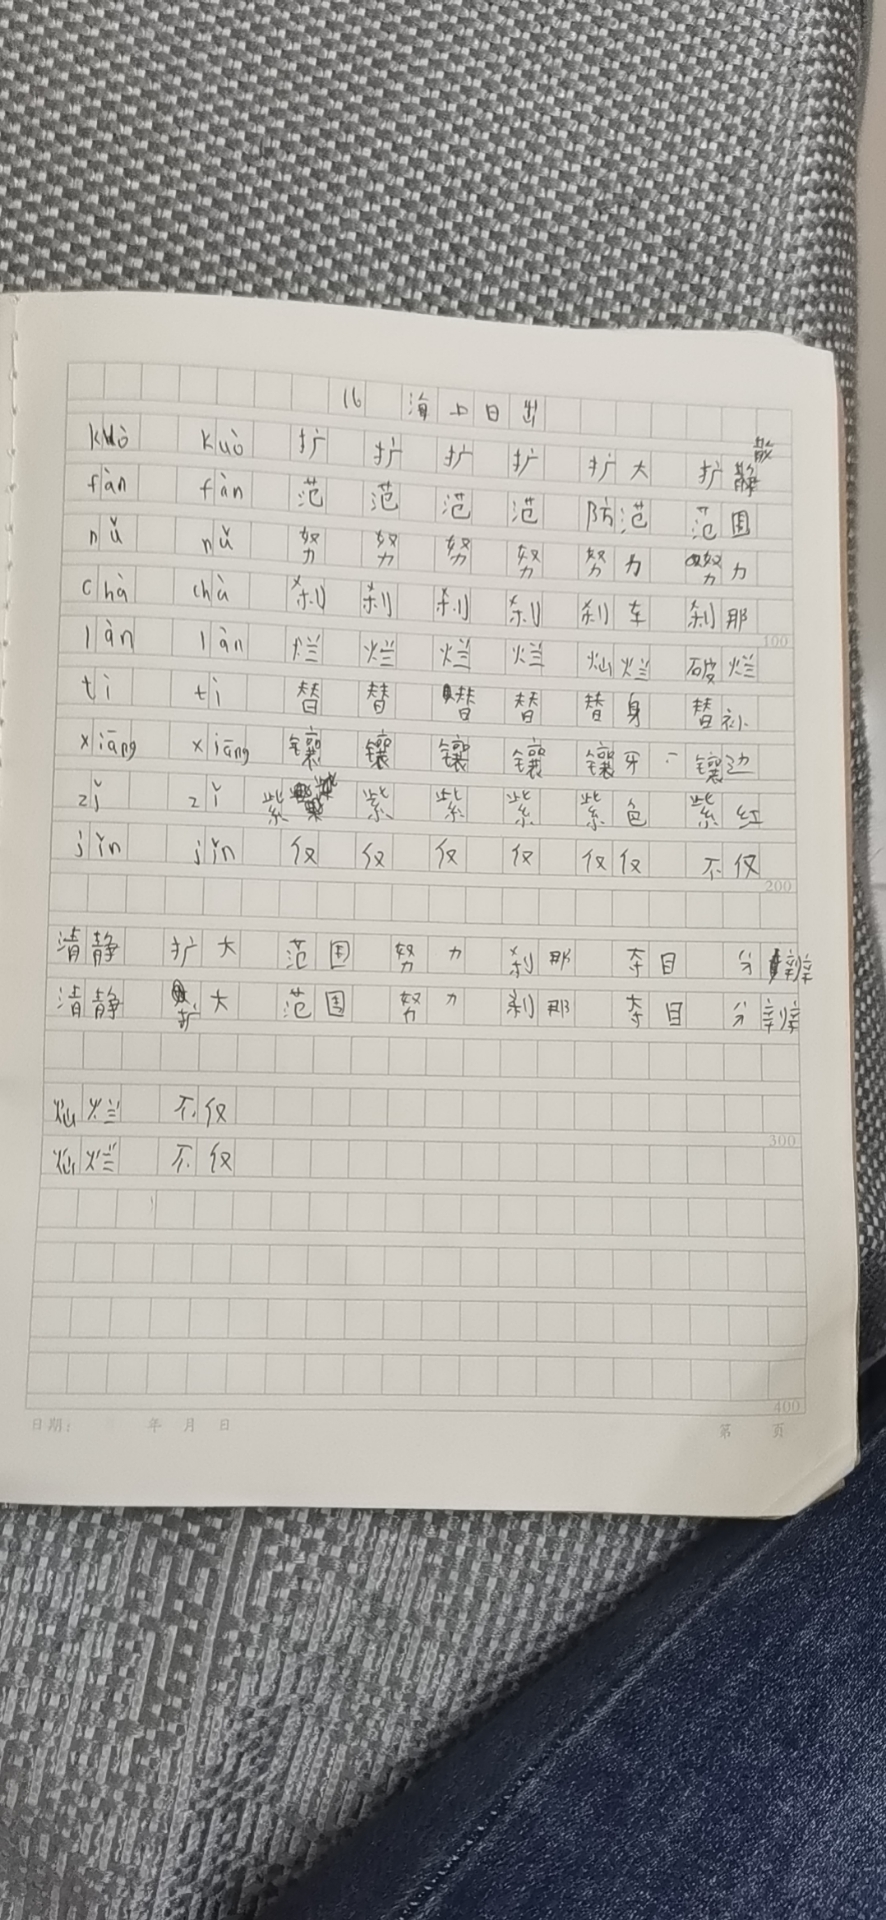 16 海上日出
kuò kuò 扩 扩 扩 扩 扩大 扩散
fàn fàn 范 范 范 范 防范 范围
nǔ nǔ 努 努 努 努 努力 努力
chà chà 刹 刹 刹 刹 刹车 刹那
làn làn 烂 烂 烂 烂 灿烂 破烂
tì tì 替 替 替 替 替身 替补
xiāng xiāng 镶 镶 镶 镶 镶牙 镶边
zǐ zǐ 紫 紫 紫 紫 紫色 紫红
jǐn jǐn 仅 仅 仅 仅 仅仅 不仅
100
200
清静 扩大 范围 努力 刹那 夺目 分辨
清静 扩大 范围 努力 刹那 夺目 分辨
灿烂 不仅
300
灿烂 不仅
400
日期: 年 月 日 第 页